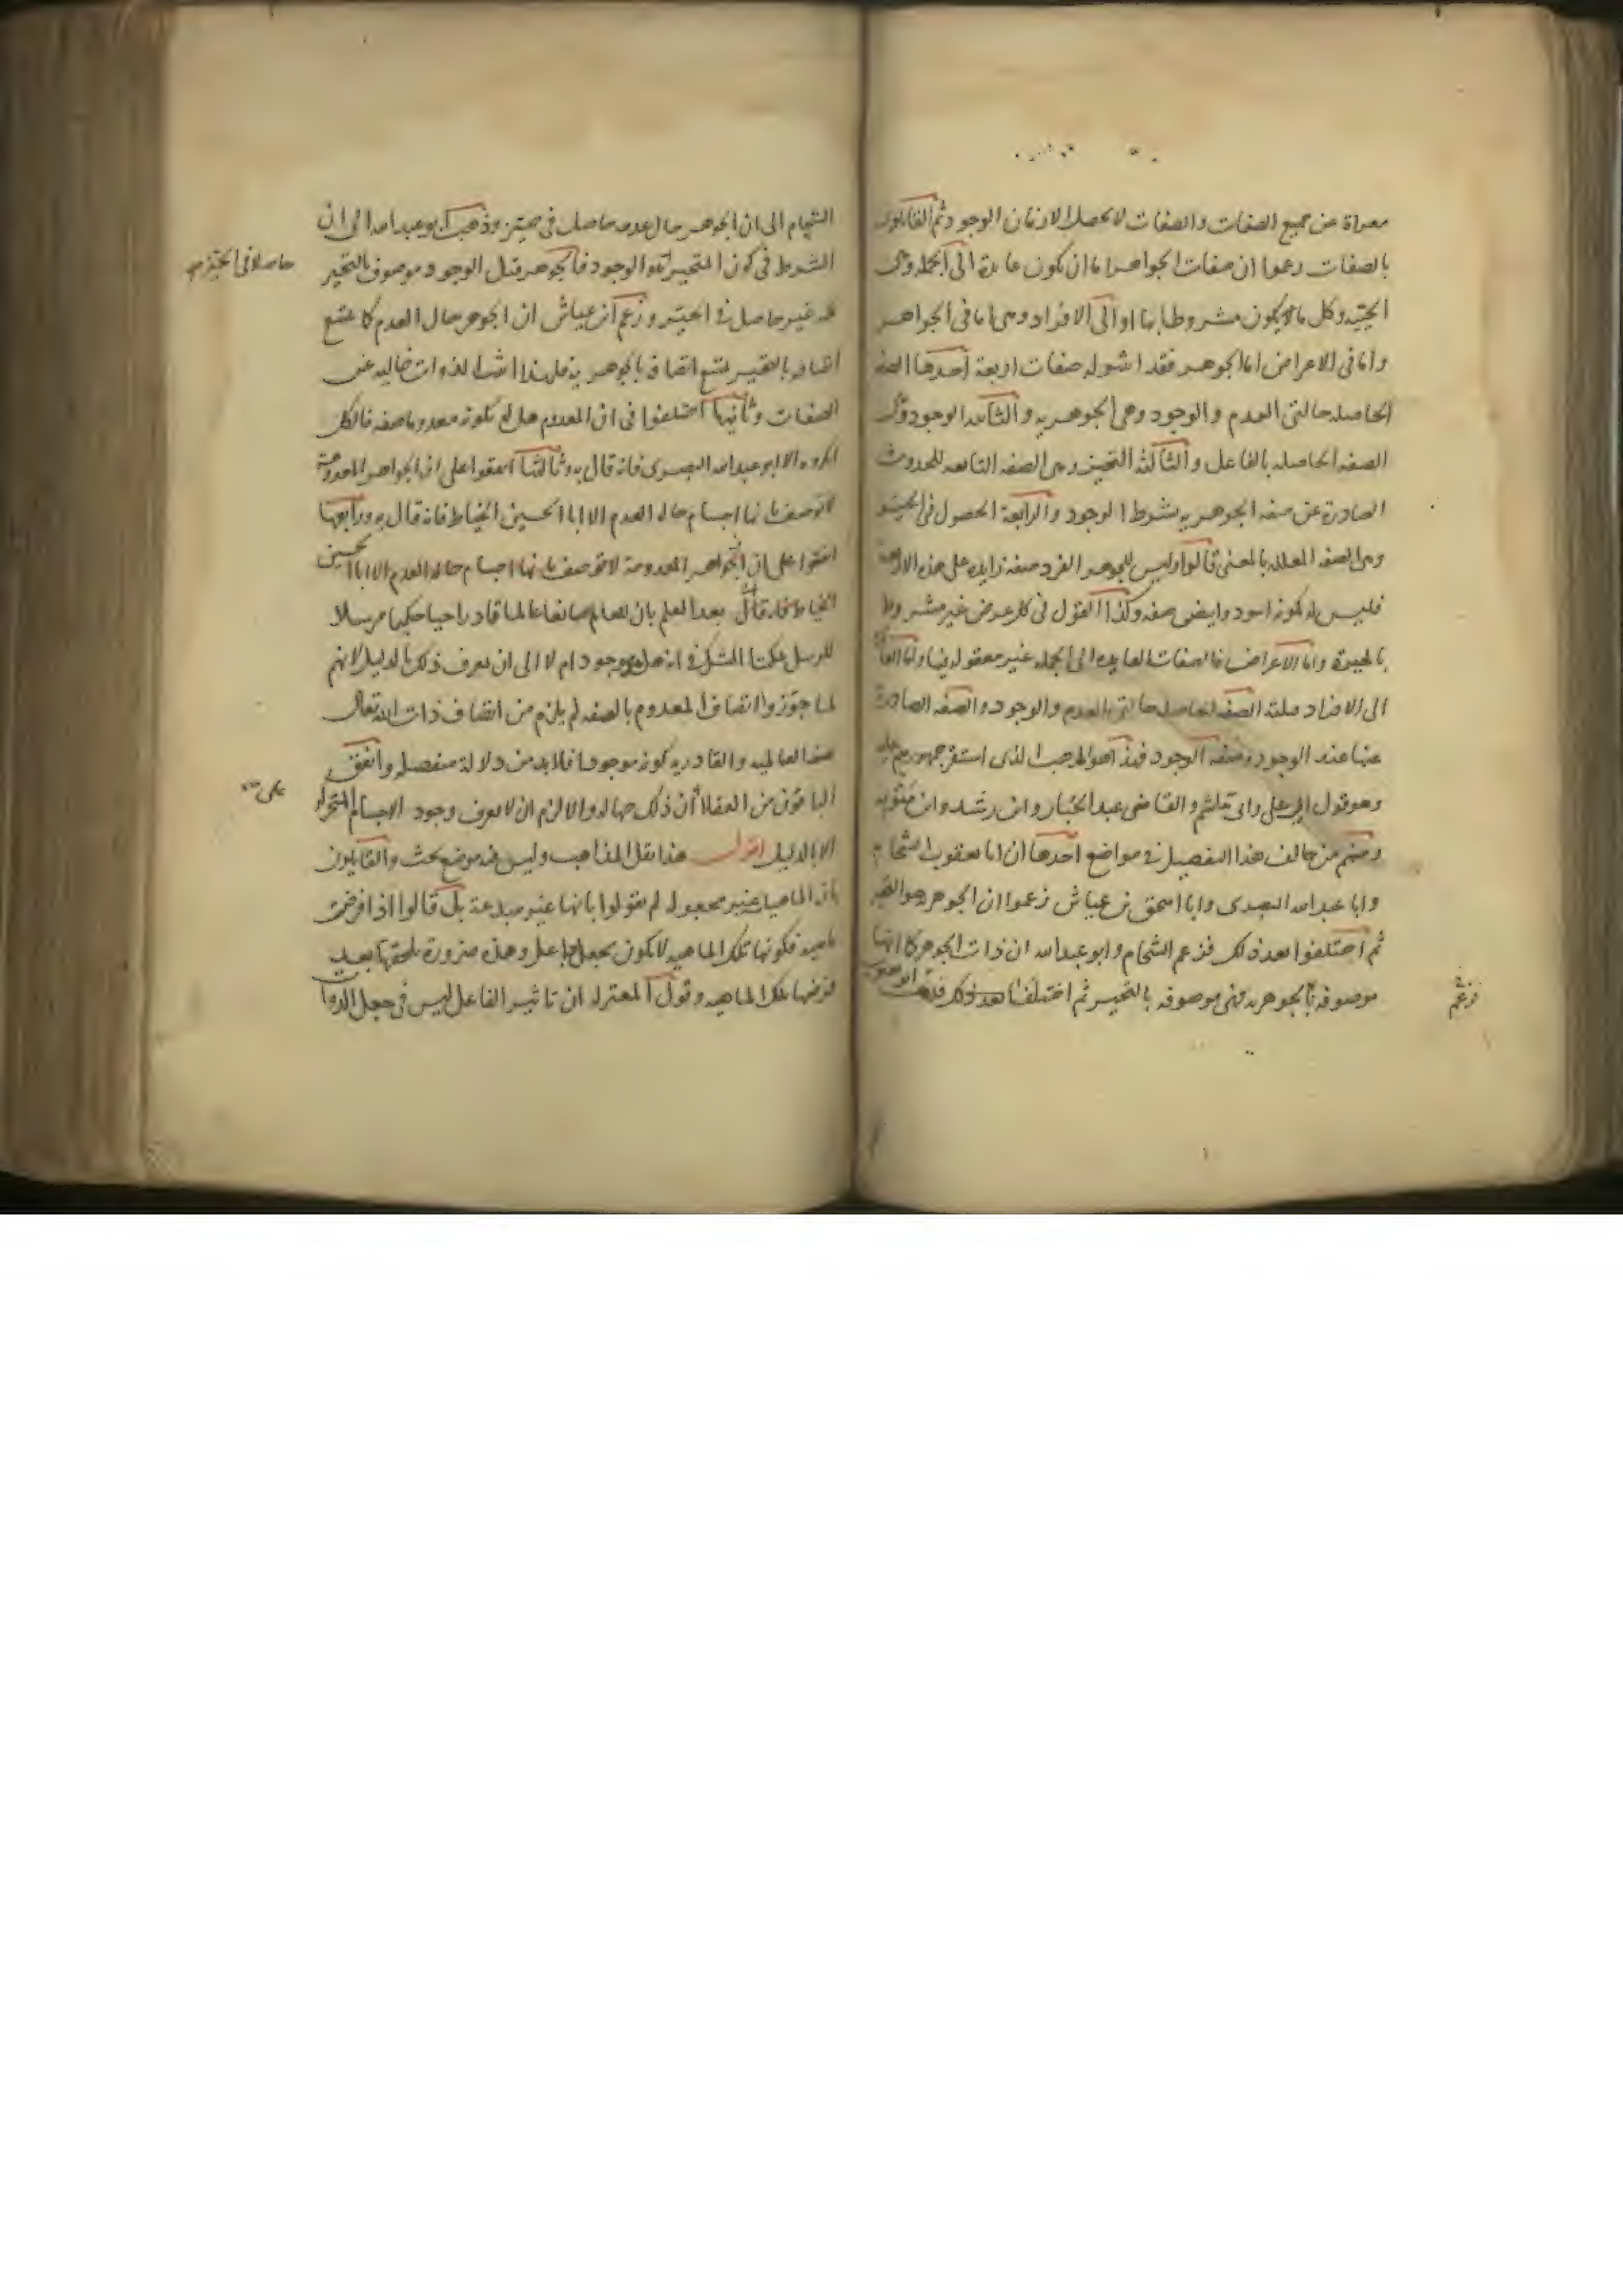 معراة عن جميع الصفات والصفات لا تحصل الا زمان الوجود ثم القايلون
بالصفات زعموا ان صفات الجواهر اما ان تكون عايدة الى الجملة وهى
الحيية وكل ما يكون مشروطا بها او الى الافراد وهى اما فى الجواهر
واما فى الاعراض اما الجوهر فقد اثبتوا له صفات اربعة احدها الصفة
الحاصلة حالتى العدم والوجود وهى الجوهرية والثانية الوجود وهى
الصفة الحاصلة بالفاعل والثالثة التحيز وهى الصفة التابعة للحدوث
الصادرة عن صفة الجوهرية بشرط الوجود والرابعة الحصول فى الحيز
وهى الصفة المعللة بالمعنى قالوا وليس للجوهر الفرد صفة زايدة على هذه الاربعة
فليس له بكونه اسود وابيض صفة وكذا القول فى كل عرض غير مشروط
بالحيوة واما الاعراض فالصفات العايدة الى الجملة غير معقولة فيها واما العايدة
الى الافراد فثلثة الصفة الحاصلة حالتى العدم والوجود والصفة الصادرة
عنها عند الوجود وصفة الوجود فهذا هو المذهب الذى استقر جمهورهم عليه
وهو قول ابى على وابى هاشم والقاضى عبد الجبار وابن رشيد وابن متويه
ومنهم من خالف هذا التفصيل فى مواضع احدها ان ابا يعقوب الشحام
وابا عبد الله البصرى وابا اسحق بن عياش زعموا ان الجوهرية هو التحيز
ثم اختلفوا بعد ذلك فزعم الشحام وابو عبد الله ان ذات الجوهر كما انها
موصوفة بالجوهرية فهى موصوفة بالتحيز ثم اختلفا بعد ذلك فذهب ابو يعقوب
فزعم
الشحام الى ان الجوهر حال عدمه حاصل فى حيز وذهب ابو عبد الله الى ان
الشرط فى كون المتحيز هو الوجود فالجوهر قبل الوجود موصوف بالتحيز
حاصلا فى الحيز صح
لكنه غير حاصل فى الحيز وزعم ابن عياش ان الجوهر حال العدم كما يمتنع
اتصافه بالتحيز يمتنع اتصافه بالجوهرية فلهذا اثبت الذوات خالية عن
الصفات وثانيها اختلفوا فى ان المعدوم هل له بكونه معدوما صفة فالكل
انكروه الا ابو عبد الله البصرى فانه قال به وثالثها اتفقوا على ان الجواهر المعدومة
لا توصف بانها اجسام حالة العدم الا ابا الحسين الخياط فانه قال به ورابعها
اتفقوا على ان الجواهر المعدومة لا توصف بانها اجسام حالة العدم الا ابا الحسين
الخياط فانه قال بعد العلم بان للعالم صانعا عالما قادرا حيا حكيما مرسلا
للرسل يمكننا الشك فى انه هل هو موجود ام لا الى ان يعرف ذلك بالدليل لانهم
لما جوزوا اتصاف المعدوم بالصفة لم يلزم من اتصاف ذات الله تعالى
بصفة العالمية والقادرية كونه موجودا فلا بد من دلالة منفصلة واتفق
الباقون من العقلاء ان ذلك جهالة والا لزم ان لا يعرف وجود الاجسام المتحركة
الا بالدليل اقول هذا نقل المذاهب وليس فيه موضع بحث والقايلون
بان الماهيات غير مجعولة لم يقولوا بانها غير مبدعة بل قالوا اذا فرضت
ماهية فكونها تلك الماهية لا يكون بجعل جاعل وهذه ضرورة يلحقها بعد
فرضها تلك الماهية وقول المعتزلة ان تاثير الفاعل ليس فى جعل الذوات